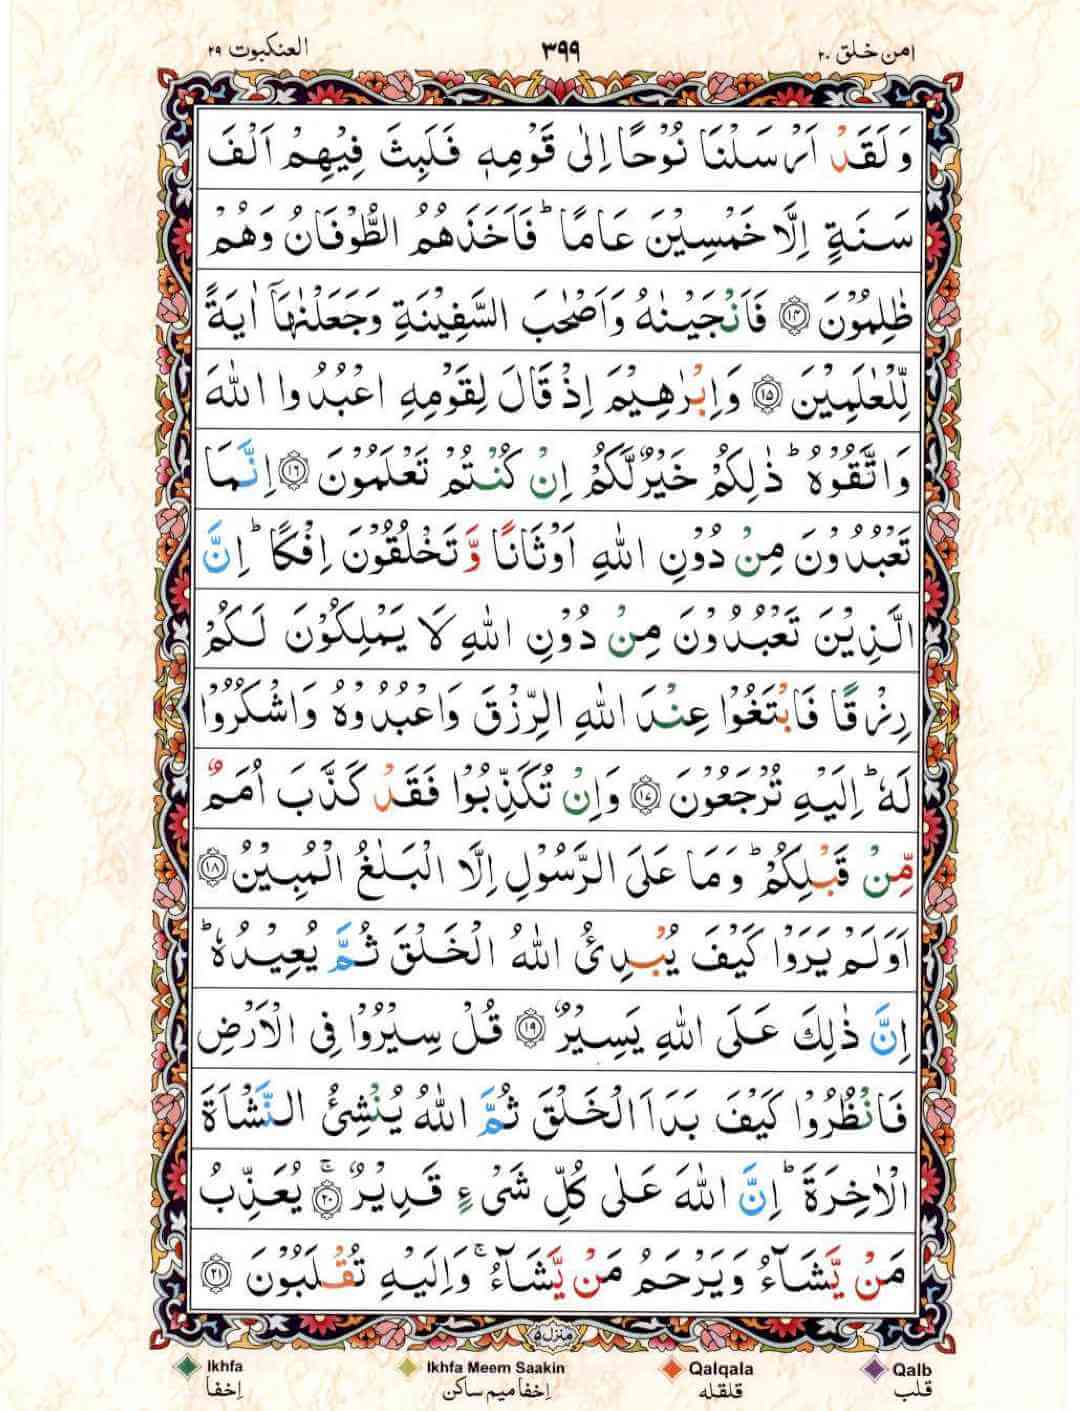 امن خلق ۲۰
۳۹۹
العنكبوت ۲۹
وَلَقَدْ اَرْسَلْنَا نُوْحًا اِلٰى قَوْمِهٖ فَلَبِثَ فِيْهِمْ اَلْفَ
سَنَةٍ اِلَّا خَمْسِيْنَ عَامًا ؕ فَاَخَذَهُمُ الطُّوْفَانُ وَهُمْ
ظٰلِمُوْنَ ۝۱۴ فَاَنْجَيْنٰهُ وَاَصْحٰبَ السَّفِيْنَةِ وَجَعَلْنٰهَاۤ اٰيَةً
لِّلْعٰلَمِيْنَ ۝۱۵ وَاِبْرٰهِيْمَ اِذْ قَالَ لِقَوْمِهِ اعْبُدُوا اللّٰهَ
وَاتَّقُوْهُ ؕ ذٰلِكُمْ خَيْرٌ لَّكُمْ اِنْ كُنْتُمْ تَعْلَمُوْنَ ۝۱۶ اِنَّمَا
تَعْبُدُوْنَ مِنْ دُوْنِ اللّٰهِ اَوْثَانًا وَّ تَخْلُقُوْنَ اِفْكًا ؕ اِنَّ
الَّذِيْنَ تَعْبُدُوْنَ مِنْ دُوْنِ اللّٰهِ لَا يَمْلِكُوْنَ لَكُمْ
رِزْقًا فَابْتَغُوْا عِنْدَ اللّٰهِ الرِّزْقَ وَاعْبُدُوْهُ وَاشْكُرُوْا
لَهٗ ؕ اِلَيْهِ تُرْجَعُوْنَ ۝۱۷ وَاِنْ تُكَذِّبُوْا فَقَدْ كَذَّبَ اُمَمٌ
مِّنْ قَبْلِكُمْ ؕ وَمَا عَلَى الرَّسُوْلِ اِلَّا الْبَلٰغُ الْمُبِيْنُ ۝۱۸
اَوَلَمْ يَرَوْا كَيْفَ يُبْدِئُ اللّٰهُ الْخَلْقَ ثُمَّ يُعِيْدُهٗ ؕ
اِنَّ ذٰلِكَ عَلَى اللّٰهِ يَسِيْرٌ ۝۱۹ قُلْ سِيْرُوْا فِى الْاَرْضِ
فَانْظُرُوْا كَيْفَ بَدَاَ الْخَلْقَ ثُمَّ اللّٰهُ يُنْشِئُ النَّشْاَةَ
الْاٰخِرَةَ ؕ اِنَّ اللّٰهَ عَلٰى كُلِّ شَىْءٍ قَدِيْرٌ ۝۲۰ ۚ يُعَذِّبُ
مَنْ يَّشَآءُ وَيَرْحَمُ مَنْ يَّشَآءُ ۚ وَاِلَيْهِ تُقْلَبُوْنَ ۝۲۱
منزل ۵
Ikhfa Ikhfa Meem Saakin Qalqala Qalb
اِخفا اِخفا میم ساکن قلقله قلب